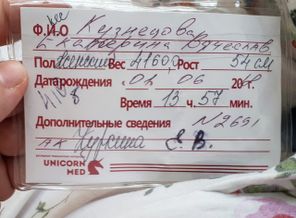 Ф.И.О Кузнецова
Екатерина Вячеслав
Пол женский Вес 4160 Рост 54 см
Дата рождения 01 06 20
Время 13 ч. 57 мин
Дополнительные сведения N2691
АК Курсина Е.В.
UNICORN
MED